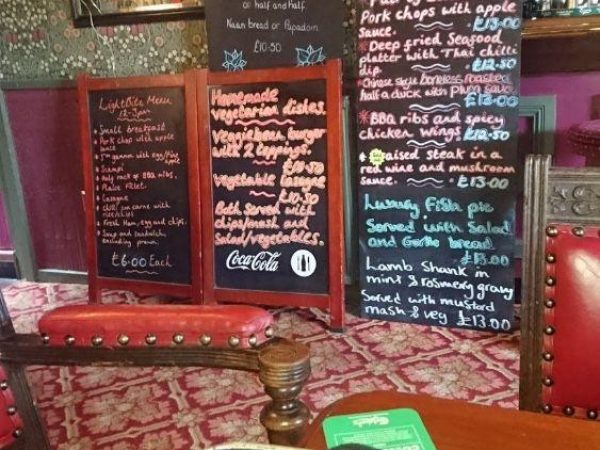 or half and half.
Naan bread or Papadom.
£10.50
LightBite Menu
12-3pm
* Small breakfast
* Pork chop with apple
sauce
* 5oz gammon with egg/Pine
apple
* Scampi
* half rack of BBQ ribs.
* Plaice fillet.
* Lasagne
* chilli con carne with
rice/chips
* Fresh Ham, egg and chips.
* Soup and sandwich,
excluding prawn
£6.00 Each
Homemade
vegetarian dishes.
Veggiebean burger
with 2 toppings.
£10.50
Vegetable Lasagne
£10.50
Both Served with
chips/mash and
Salad/vegetables.
Coca-Cola
Pork chops with apple
sauce. £13.00
* Deep fried Seafood
platter with Thai chilli
dip. £12.50
* Chinese style boneless roasted
half a duck with plum sauce
£13.00
* BBQ ribs and spicy
chicken wings £12.50
raised steak in a
red wine and mushroom
sauce. £13.00
Luxury Fish pie
Served with Salad
and Garlic bread
£13.00
Lamb Shank in
mint & rosemery gravy
Served with mustard
mash & veg £13.00